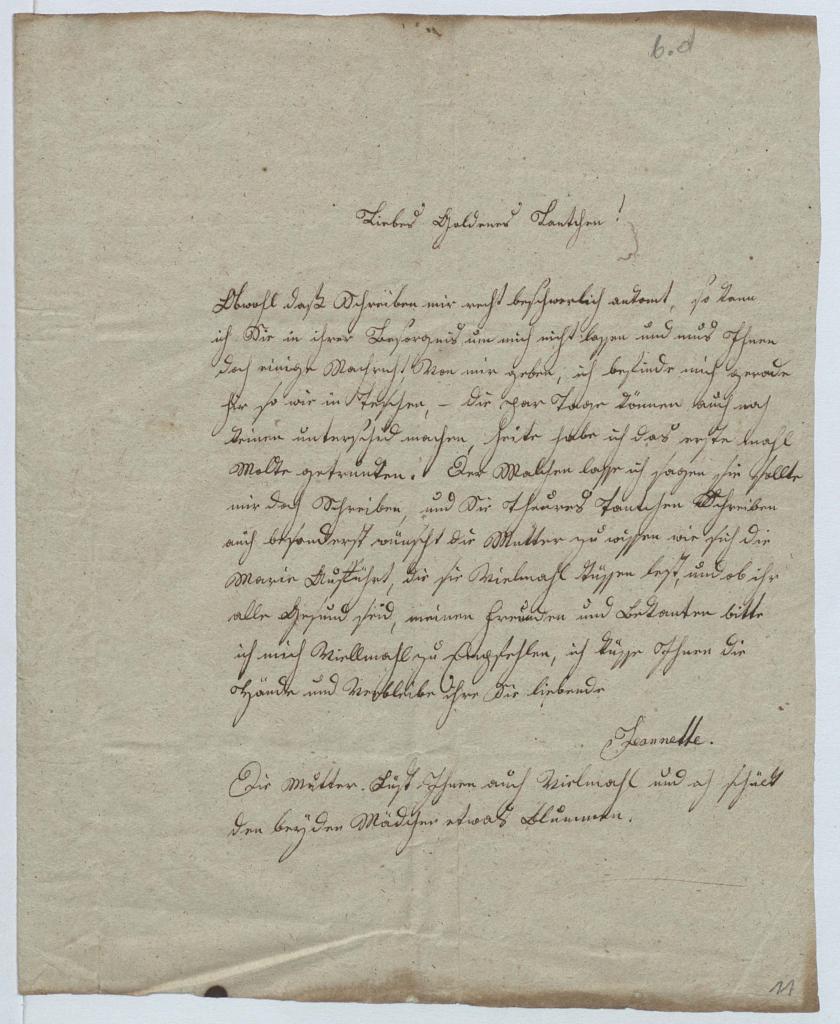 6.d
Liebes Goldenes Tantchen!
Obwohl daß Schreiben mir recht beschwerlich ankomt, so kann
ich Sie in ihrer Besorgnis um mich nicht lassen und mus Ihnen
doch einige Nachricht Von mir geben, ich befinde mich gerade
hir so wie in Teschen, – die par Tage können auch noch
keinen unterschid machen, heite habe ich das erste mahl
Molke getrunken. Der Malchen lasse ich sagen sie sollte
mir doch Schreiben, und Sie Theures Tantchen Schreiben
auch besonderst wünscht die Mutter zu wissen wie sich die
Marie Aufführt, die sie Vielmahl küssen lest, und ob ihr
alle Gesund seid, meinen Freunden und Bekanten bitte
ich mich Viellmahl zu Empfehlen, ich küsse Ihnen die
Hände und Verbleibe ihre Sie liebende
Jeannette.
Die Mutter Küst Ihnen auch Vielmahl und schükt
den beyden Mädchen etwas Blummen.
11